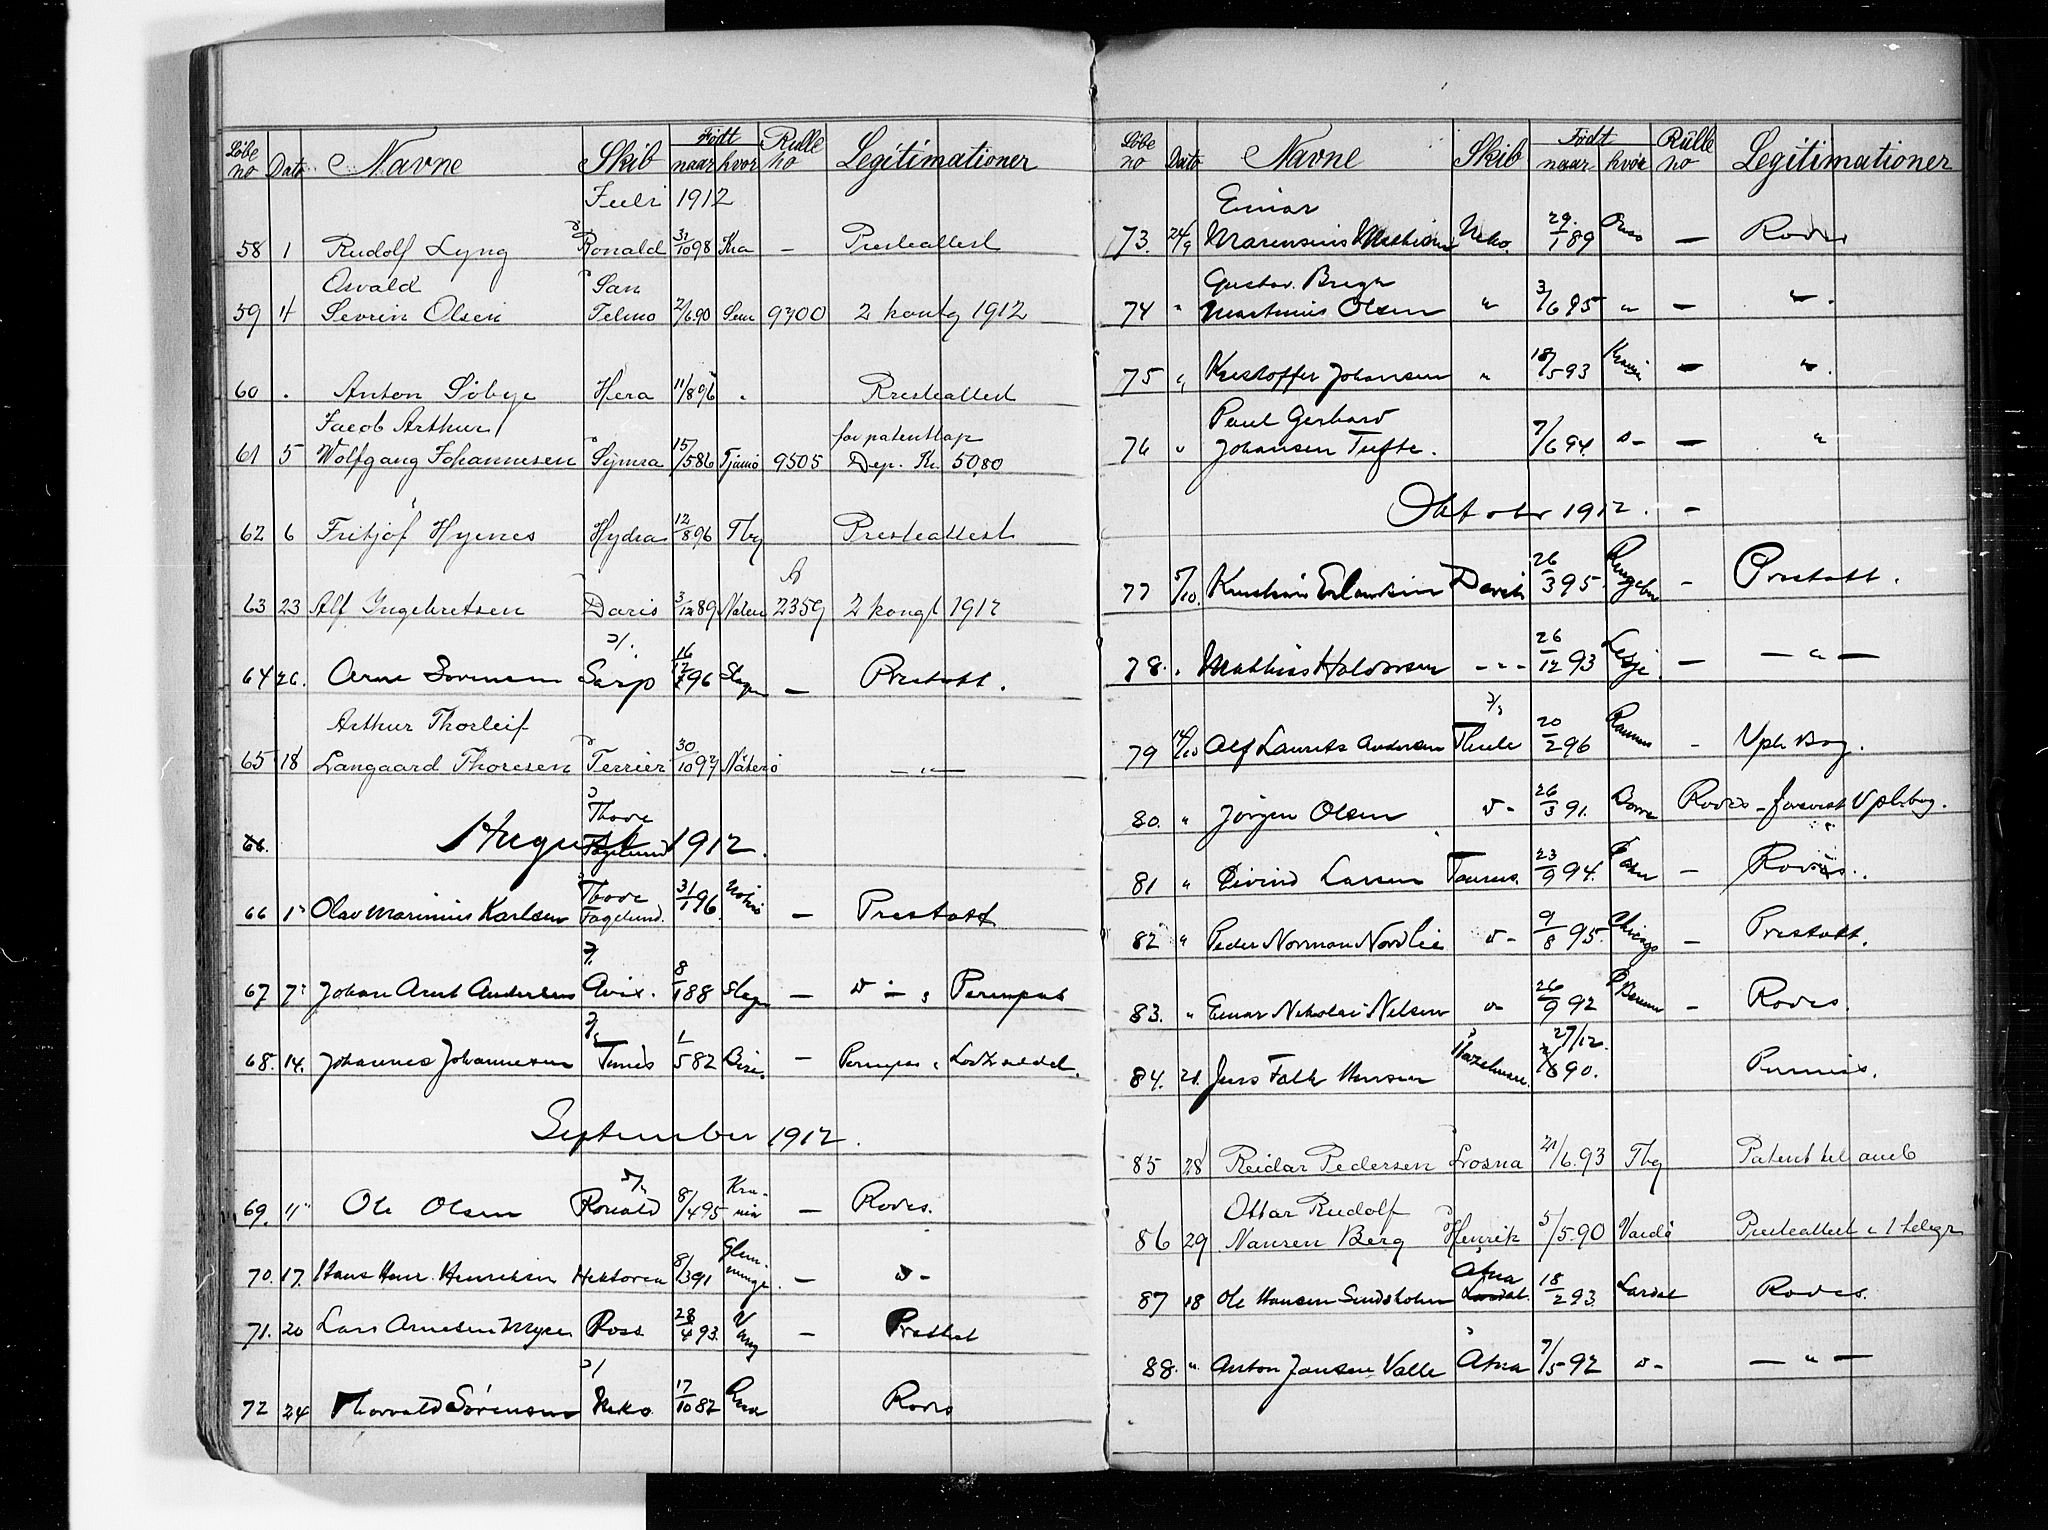 Løbe no Dato Navne Skib Født naar hvor Rulle no Legitimationer
Juli 1912
58 1 Rudolf Lyng Ronald 31/10 98 Kra — Presteattest
Osvald San
59 4 Sevrin Olsen Telmo 2/6 90 Sem 9700 2 kontg 1912
60 . Anton Söbye Hera 11/8 96 " Presteattest
Jacob Arthur for patentkap
61 5 Wolfgang Johannesen Symra 15/5 86 Tjømø 9505 Dep. Kr. 50,80
62 6 Fritjof Hyenes Hydra 12/8 96 Tbg Presteattest
63 23 Alf Ingebretsen Daris 3/12 89 2359 2 kongt 1912
64 26. Arne Sörensen Sarp 16/ 96 Slagen — Prestatt.
Arthur Thorleif
65 18 Langaard Thoresen Terrier 30/10 97 Nøterö — " —
Thore
66. August Fagelund 1912.
66 1 Olav Marinius Karlsen Thore Fagelund. 31/1 96. — Prestatt
67 7 Johan Arnt Andersen Avix. 8/1 88 Slagen — Permpas
68. 14. Johannes Johannesen Tunis 1/5 82 — Permpas
September 1912.
69. 11 Ole Olsen Ronald 8/4 95 — Rodes.
70. 17. Hans Henr. Henriksen Hektoria 8/3 91 —
71. 20 Lars Arnesen Myre Ross 28/4 93. Vang — Prestatt
72 24 Thorvald Sörensen Neko 17/10 82 Rodes
Løbe no Dato Navne Skib Født naar hvor Rulle no Legitimationer
Einar
73. 24/9 Marensius Mathisen Neko. 29./1 89 — Rodes
Gustav. Bregn
74 " Martinius Olsen " 3/6 95 " — "
75 " Kristoffer Johansen " 18/5 93 — "
Paul Gerhard
76 " Johansen Tufte. 7/6 94. — "
Oktober 1912. —
77 5/10. Kristian Erlandsen 26/3 95. Ringebu — Prestatt.
78. . Mathias Halvorsen - " - 26/12 93 Lesje. — — " —
79 14/10 Alf Laurits Andersen Thule 20/2 96 Ramnes — Vpl. Bog.
80. " Jörgen Olsen 26/3 91. Borre Rodes — forevist Vplbog.
81 " Eivind Larsen Taurus. 23/9 94. — Rodes.
82 " Peder Norman Nordlie 9/8 95. Chicago — Prestatt.
83. " Einar Nikolai Nilsen 26/9 92 — Rodes.
27/12.
84. 21. Jens Falk Hansen 90.
85 28 Reidar Pedersen Losna 21/6.93 Tbg Patent til
Ottar Rudolf
86 29 Nansen Berg Henrik 5/5 90 Vardö Presteattest
Atna
87 18 Ole Hansen Sundsholm Lardal. 18/2 93. Lardal Rodes.
88. " Anton Jansen Valle Atna 7/5 92 — " —